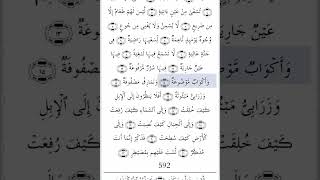 تُسْقَىٰ مِنْ عَيْنٍ ءَانِيَةٍ ۝ لَّيْسَ لَهُمْ طَعَامٌ إِلَّا
مِن ضَرِيعٍ ۝ لَّا يُسْمِنُ وَلَا يُغْنِى مِن جُوعٍ ۝
وُجُوهٌ يَوْمَئِذٍ نَّاعِمَةٌ ۝ لِّسَعْيِهَا رَاضِيَةٌ ۝ فِى
جَنَّةٍ عَالِيَةٍ ۝ لَّا تَسْمَعُ فِيهَا لَٰغِيَةً ۝ فِيهَا
عَيْنٌ جَارِيَةٌ ۝ فِيهَا سُرُرٌ مَّرْفُوعَةٌ ۝
وَأَكْوَابٌ مَّوْضُوعَةٌ ۝ وَنَمَارِقُ مَصْفُوفَةٌ ۝
وَزَرَابِىُّ مَبْثُوثَةٌ ۝ أَفَلَا يَنظُرُونَ إِلَى ٱلْإِبِلِ
كَيْفَ خُلِقَتْ ۝ وَإِلَى ٱلسَّمَآءِ كَيْفَ رُفِعَتْ
۝ وَإِلَى ٱلْجِبَالِ كَيْفَ نُصِبَتْ ۝ وَإِلَى
ٱلْأَرْضِ كَيْفَ سُطِحَتْ ۝ فَذَكِّرْ إِنَّمَآ أَنتَ
مُذَكِّرٌ ۝ لَّسْتَ عَلَيْهِم بِمُصَيْطِرٍ ۝
592